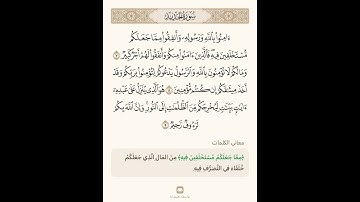 سُورَةُ الْحَدِيدِ
ءَامِنُوا۟ بِٱللَّهِ وَرَسُولِهِۦ وَأَنفِقُوا۟ مِمَّا جَعَلَكُم
مُّسْتَخْلَفِينَ فِيهِ ۖ فَٱلَّذِينَ ءَامَنُوا۟ مِنكُمْ وَأَنفَقُوا۟ لَهُمْ أَجْرٌ كَبِيرٌ ٧
وَمَا لَكُمْ لَا تُؤْمِنُونَ بِٱللَّهِ ۙ وَٱلرَّسُولُ يَدْعُوكُمْ لِتُؤْمِنُوا۟ بِرَبِّكُمْ وَقَدْ
أَخَذَ مِيثَٰقَكُمْ إِن كُنتُم مُّؤْمِنِينَ ٨ هُوَ ٱلَّذِى يُنَزِّلُ عَلَىٰ عَبْدِهِۦٓ
ءَايَٰتٍۭ بَيِّنَٰتٍ لِّيُخْرِجَكُم مِّنَ ٱلظُّلُمَٰتِ إِلَى ٱلنُّورِ ۚ وَإِنَّ ٱللَّهَ بِكُمْ
لَرَءُوفٌ رَّحِيمٌ ٩
معاني الكلمات
﴿مِمَّا جَعَلَكُم مُّسْتَخْلَفِينَ فِيهِ﴾ مِنَ المَالِ الَّذِي جَعَلَكُمْ
خُلَفَاءَ فِي التَّصَرُّفِ فِيهِ.